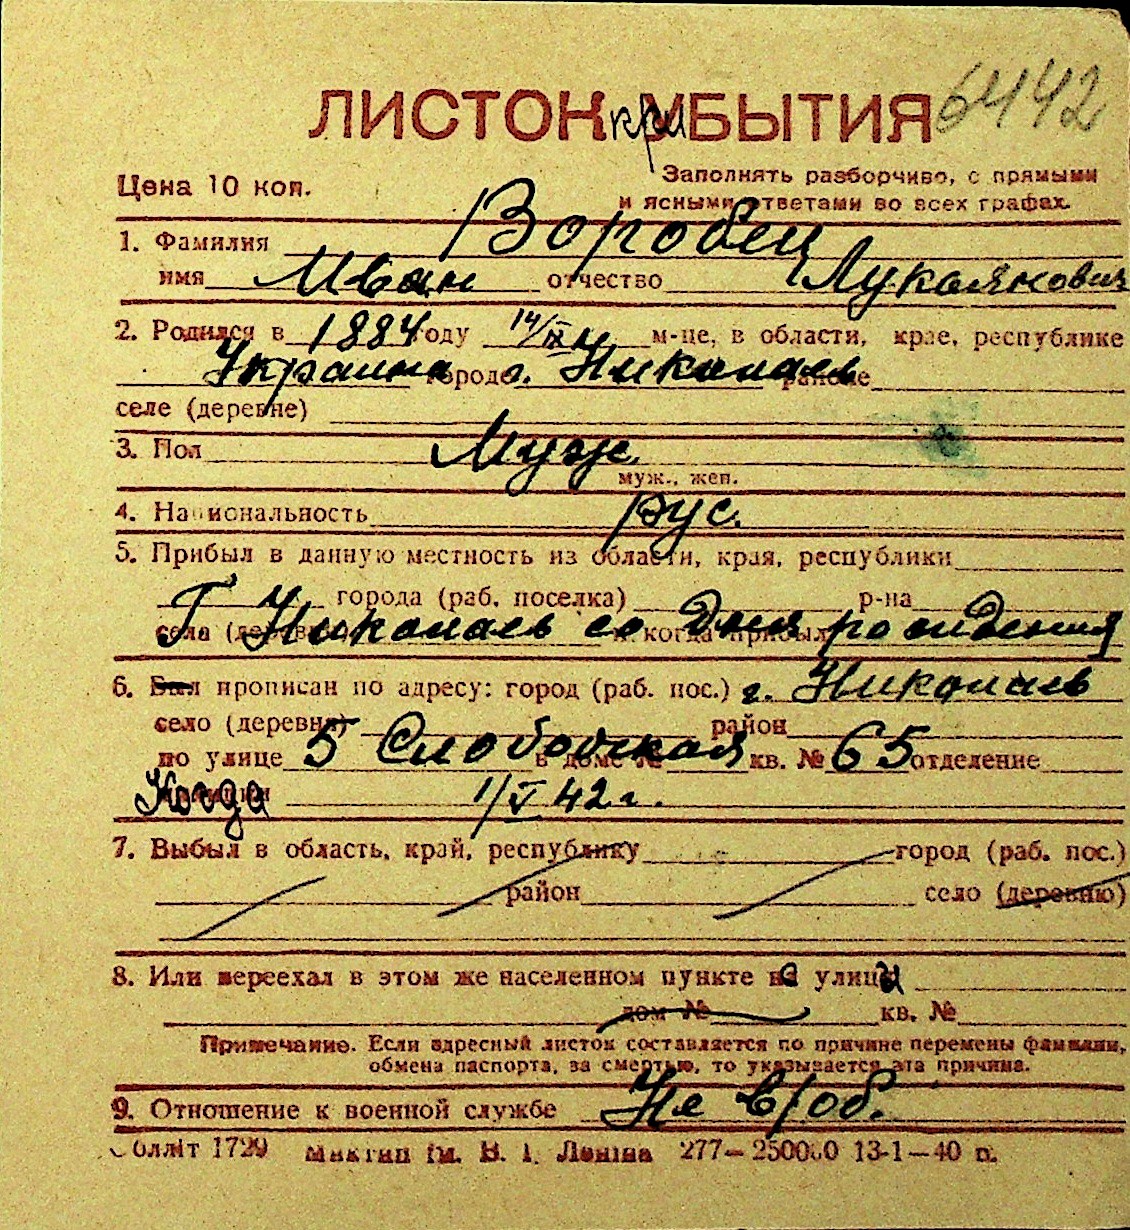 6442
ЛИСТОК УБЫТИЯ
Цена 10 коп.
Заполнять разборчиво, с прямыми
и ясными ответами во всех графах.
1. Фамилия Воробец
имя Иван отчество Лукаянович
2. Родился в 1884 году 14/IX м-це, в области, крае, республике
Украина городе г. Николаев районе
селе (деревне)
3. Пол Муж
муж., жен.
4. Национальность рус.
5. Прибыл в данную местность из области, края, республики
города (раб. поселка) р-на
села (деревни) и когда прибыл Г Николаев со дня рождения
6. Был прописан по адресу: город (раб. пос.) г. Николаев
село (деревня) район
по улице 5 Слободская в доме № кв. № 65 отделение
Когда 1/V 42 г.
7. Выбыл в область, край, республику город (раб. пос.)
район село (деревню)
8. Или переехал в этом же населенном пункте на улицу
дом № кв. №
Примечание. Если адресный листок составляется по причине перемены фамилии,
обмена паспорта, за смертью, то указывается эта причина.
9. Отношение к военной службе Не в/об.
Облліт 1729 Миктип ім. В. І. Леніна 277—250000 13-1—40 р.